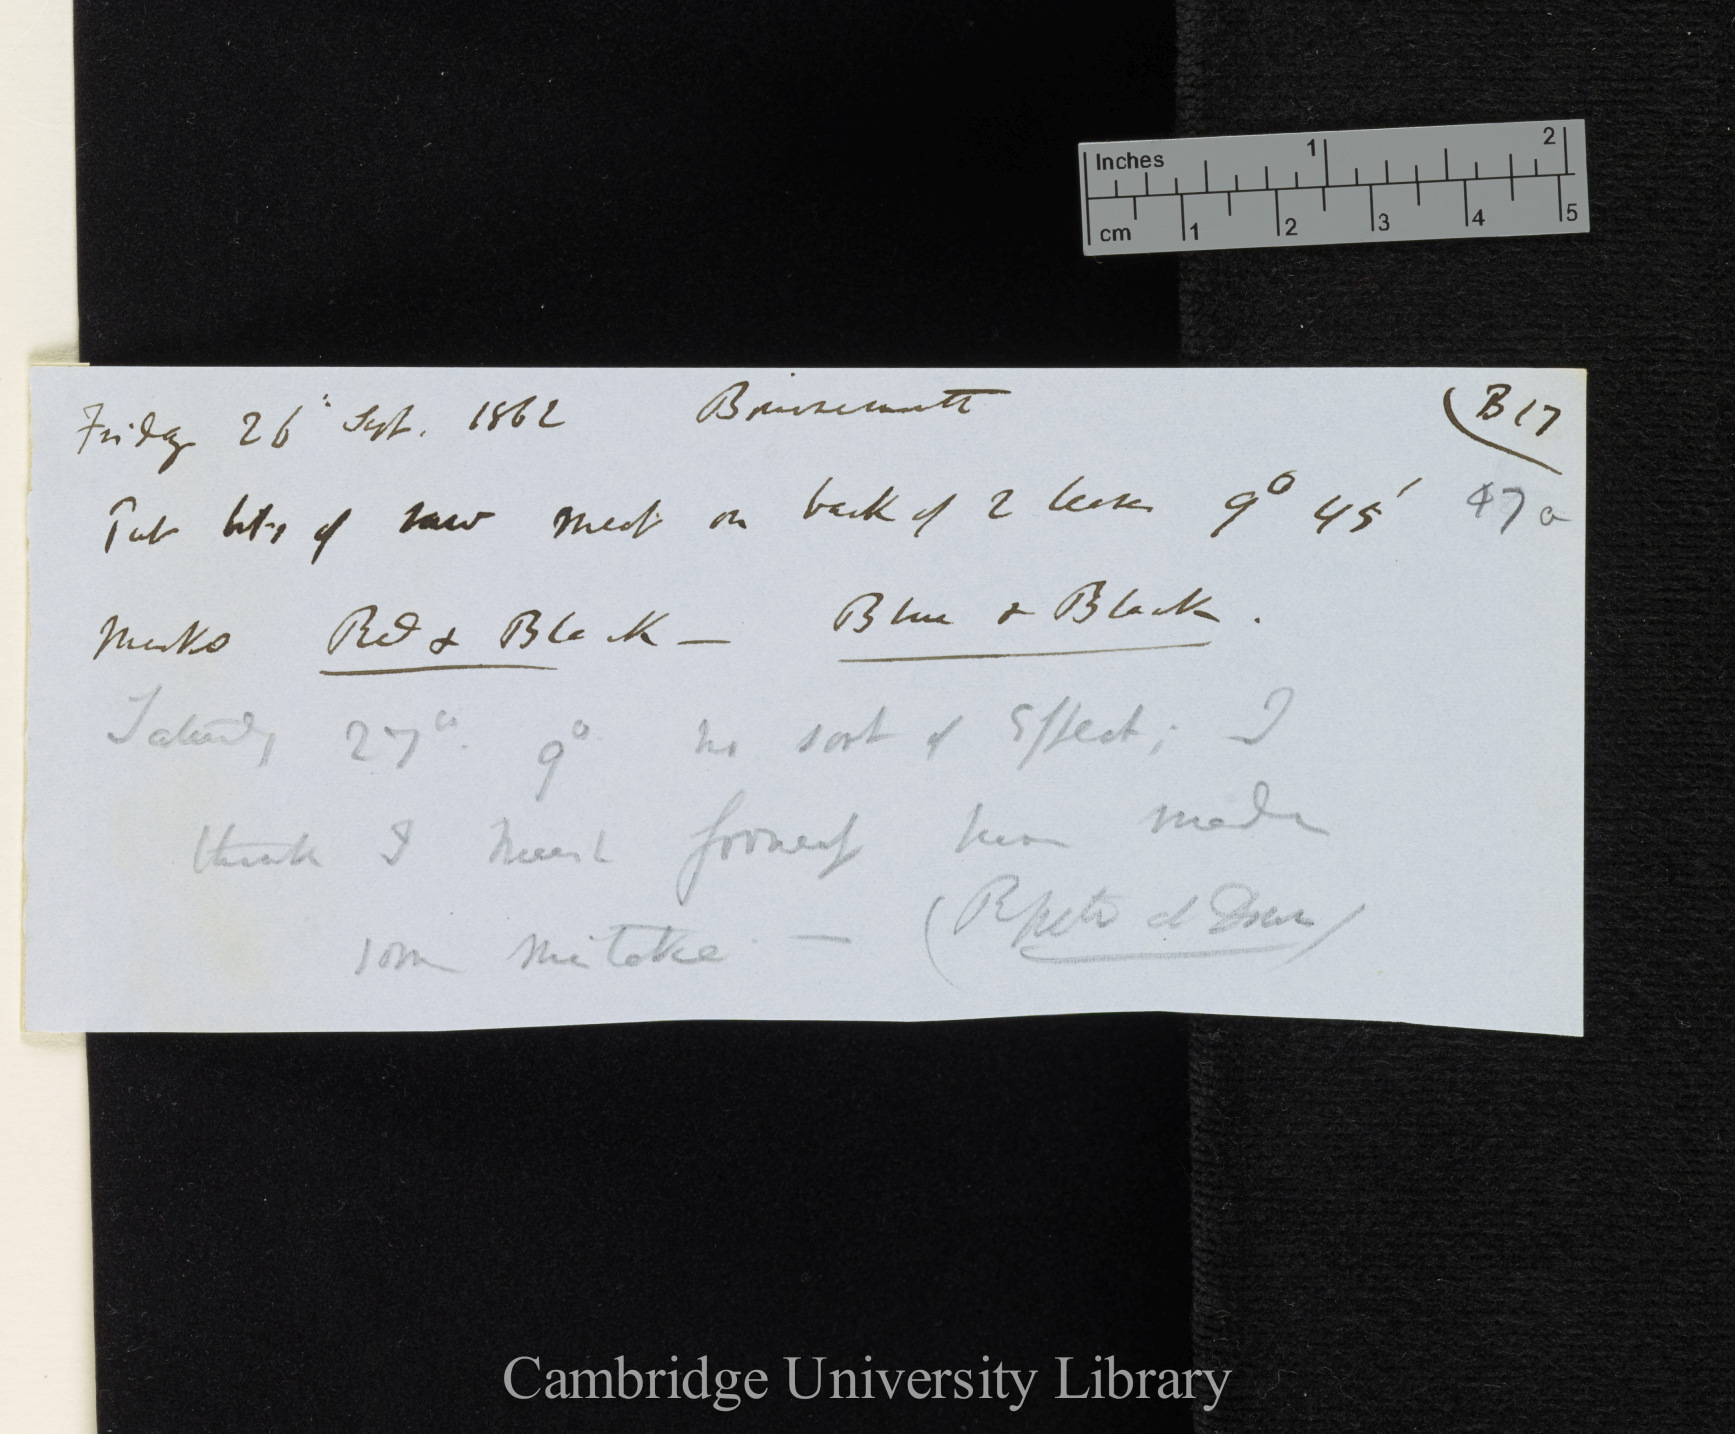 Inches 1 2
cm 1 2 3 4 5
Friday 26th Sept. 1862 Bournemouth (B 17
Put bits of raw meat on back of 2 leaves 9° 45' 47a
Marks Red & Black — Blue & Black.
Saturday 27th. 9° no sort of effect; I
think I must formerly have made
some mistake — (Repeated at Down)
Cambridge University Library